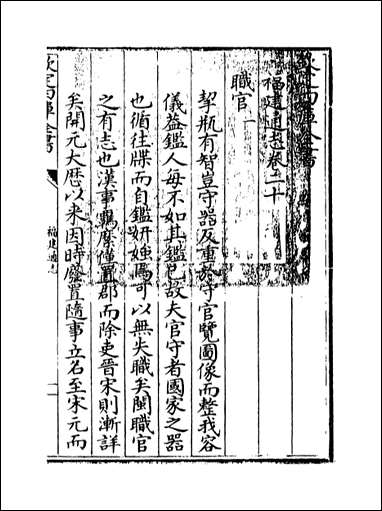 欽定四庫全書
福建通志卷二十
職官一
挈瓶有智豈守器反重於守官覽圖像而整我容
儀葢鑑人每不如其鑑己故夫官守者國家之器
也循往牒而自鑑妍媸焉可以無失職矣閩職官
之有志也漢事羈縻僅置郡而除吏晉宋則漸詳
矣開元大厯以来因時廢置隨事立名至宋元而
欽定四庫全書
福建通志